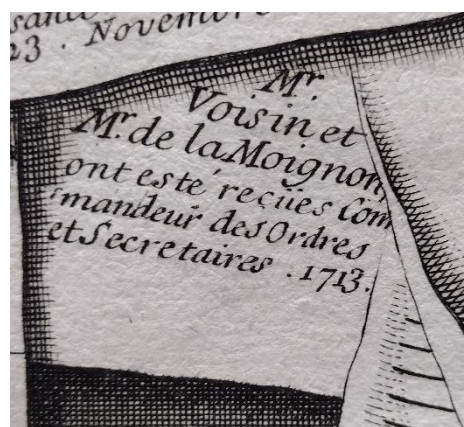 23 . Novembre
Mr.
Voisin et
Mr. de la Moignon,
ont esté reçües Com
mandeur des Ordres
et Secretaires . 1713.